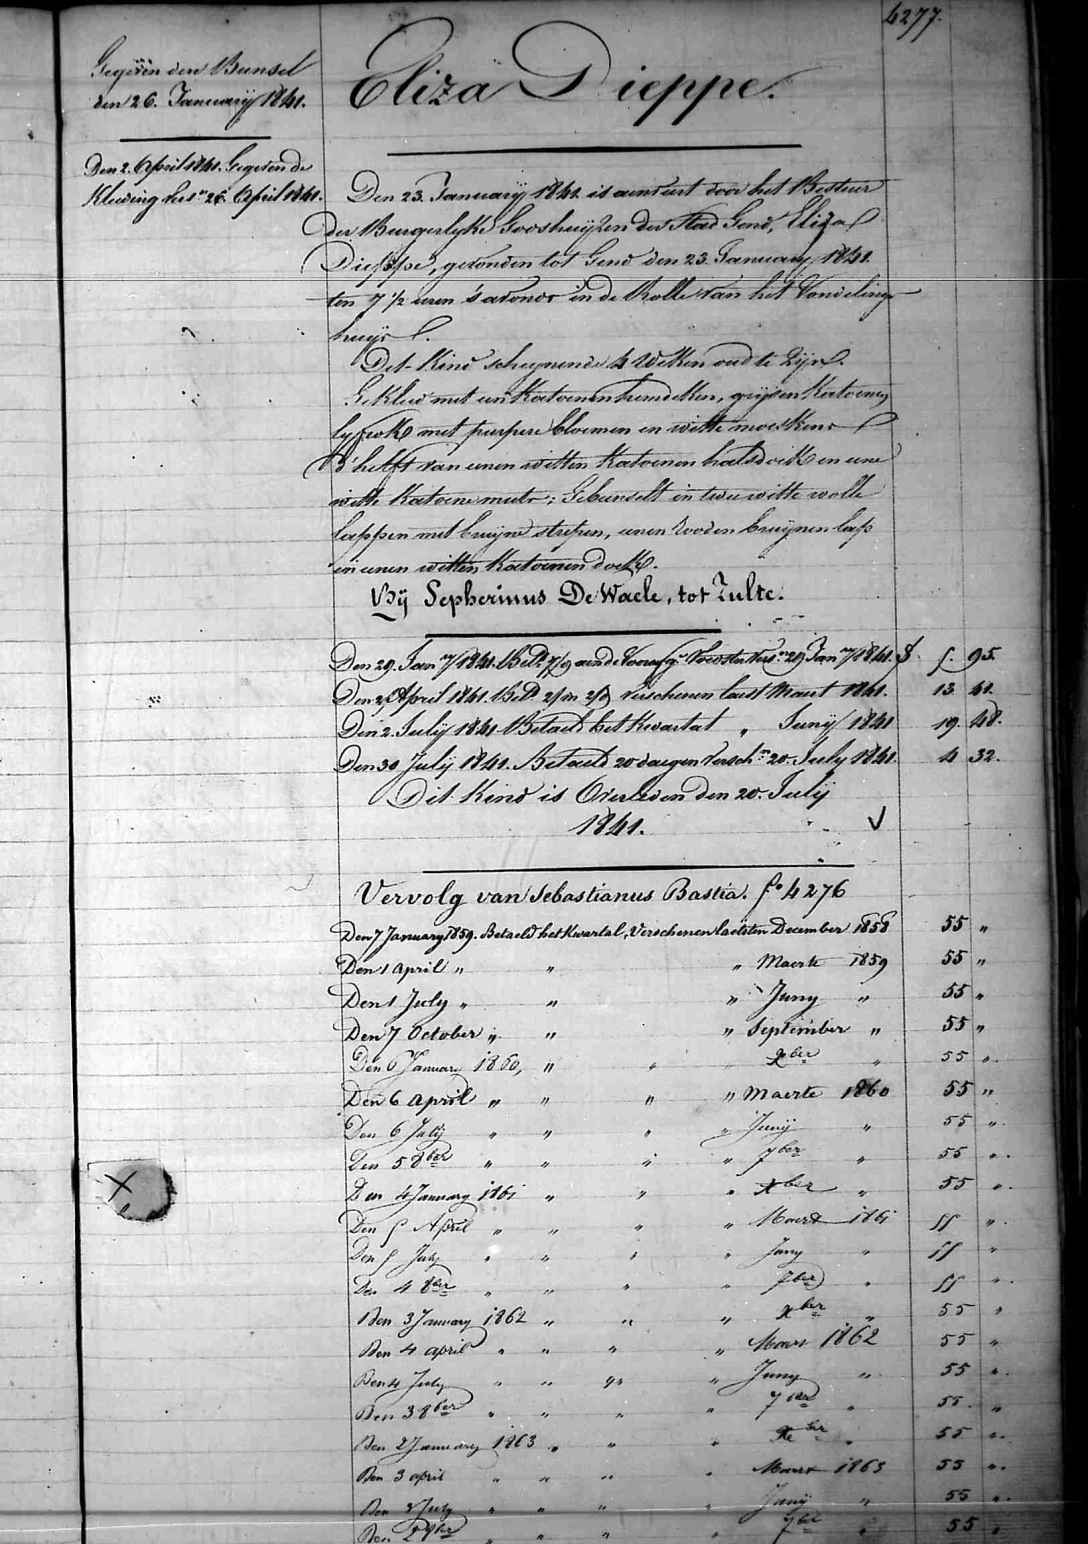 4277.
Gegeven den Bunsel
den 26. January 1841.
Den 2. April 1841. Gegeven de
Kleeding vers.n 26. April 1841.
Eliza Dieppe.
Den 23. January 1841 is aenveert door het Bestuer
der Burgerlyke Godshuyzen der Stad Gend, Eliza
Dieppe, gevonden tot Gend den 23. January 1841.
ten 7 1/2 uren 's avonds in de Rolle van het Vondeling-
huys.
Dit Kind schynende 4 Weken oud te Zyn.
Gekleed met een Katoenen hemdeken, grysen Katoenen
lyfrok met purpere bloemen en witte moeskens
d'helft van eenen witten Katoenen halsdoek en eene
witte Katoene muts; Gebunselt in twee witte wolle
lappen met bruyne strepen, eenen rooden bruynen lap
en eenen witten Katoenen doek.
By Sepherinus De Waele, tot Zulte.
Den 29. Jan.ry 1841. Bet.d aen de Voors. vers.n 29 Jan.ry 1841. f. 95.
Den 2 April 1841. Bet.d 2/m 2/d verschenen laest Maert 1841. 13. 41.
Den 2. July 1841 Betaeld het Kwartal " Juny 1841 19. 48.
Den 30 July 1841. Betaeld 20 daegen versch.n 20. July 1841. 4 32.
Dit Kind is Overleden den 20. July
1841.
Vervolg van Sebastianus Bastia. fo 4276
Den 7 January 1859. Betaeld het Kwartal, Verschenen laetsten December 1858 55 "
Den 1 April " " " Maerte 1859 55 "
Den 1 July " " " Juny " 55 "
Den 7 October " " " September " 55 "
Den 6 January 1860, " " " Xber " 55 "
Den 6 April " " " " Maerte 1860 55 "
Den 6 July " " " " Juny " 55 "
Den 5 8ber " " " " 7ber " 55 "
Den 4 January 1861 " " " Xber " 55 "
Den 5 April " " " " Maert 1861 55 "
Den 5 July " " " " Juny " 55 "
Den 4 8ber " " " " 7ber " 55 "
Den 3 January 1862 " " " Xber " 55 "
Den 4 april " " " " Maert 1862 55 "
Den 4 July " " " " Juny " 55 "
Den 3 8ber " " " " 7ber " 55 "
Den 2 January 1863 " " " Xber " 55 "
Den 3 april " " " " Maert 1863 55 "
X
Den 2 July " " " " Juny " 55 "
Den 2 8ber " " " " 7ber " 55 "